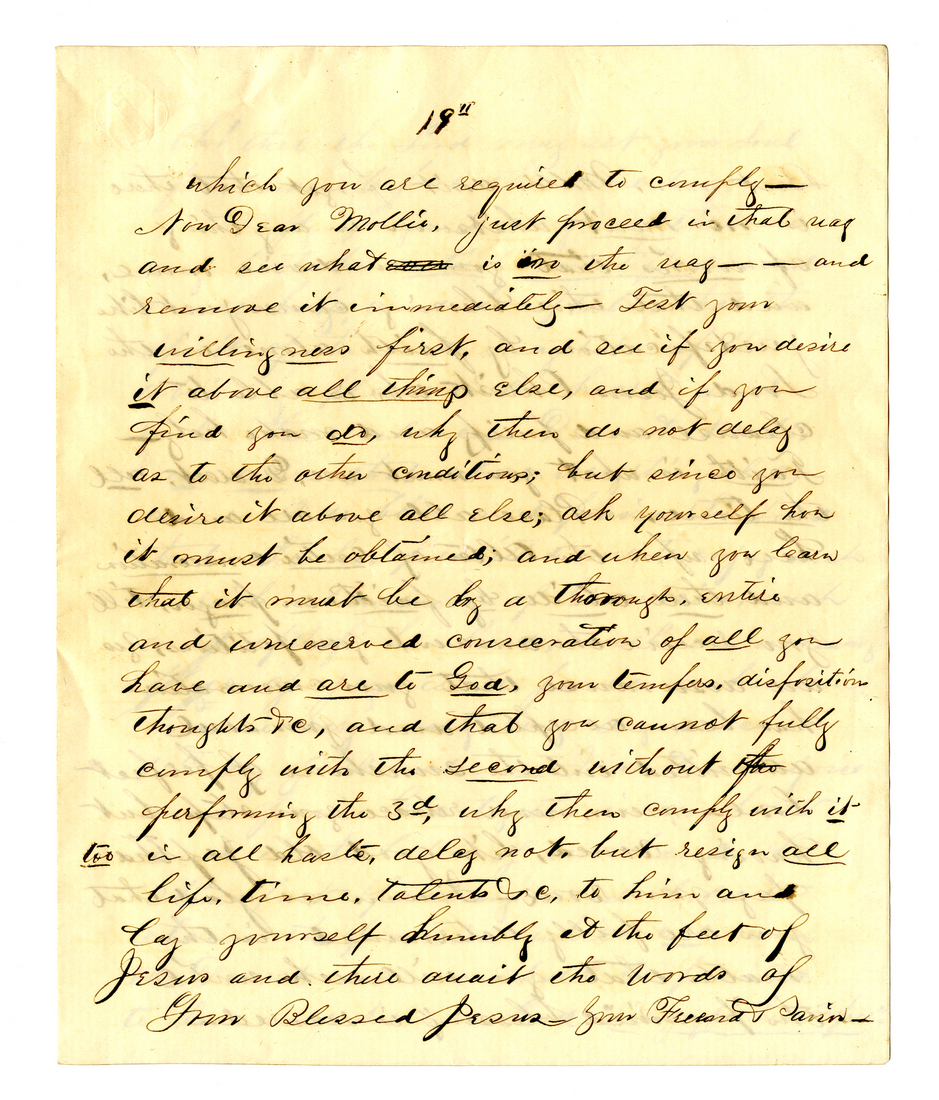 19"
which you are required to comply—
Now Dear Mollie, just proceed in that way
and see what is in the way— — and
remove it immediately— Test your
willingness first, and see if you desire
it above all things else, and if you
find you do, why then do not delay
as to the other conditions; but since you
desire it above all else; ask yourself how
it must be obtained; and when you learn
that it must be by a thorough, entire
and unreserved consecration of all you
have and are to God, your tempers, disposition
thoughts &c, and that you cannot fully
comply with the second without
performing the 3d, why then comply with it
too in all haste, delay not, but resign all
life, time, talents &c, to him and
lay yourself humbly at the feet of
Jesus and there await the words of
Your Blessed Jesus— your Friend & Savior—